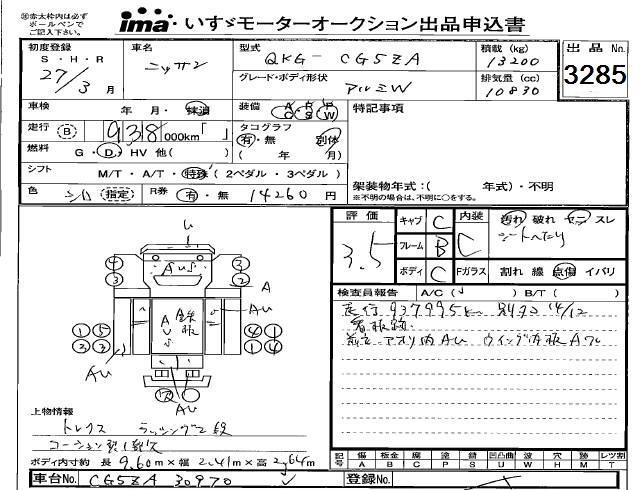 ※赤太枠内は必ず
ボールペンで
ご記入下さい。
ima・いすゞモーターオークション出品申込書
初度登録
S・H・R
27/3月
車名
ニッサン
型式
QKG-CG5ZA
グレード・ボディ形状
アルミW
積載 (kg)
13200
排気量 (cc)
10830
出品No.
3285
車検
年・月・抹消
装備
A・R・P
C・S・W
特記事項
走行 B 938000km「 」
タコグラフ
有・無 別体
( 年 月)
燃料
G・D・HV 他( )
シフト
M/T・A/T・特殊(2ペダル・3ペダル)
架装物年式:( 年式)・不明
※不明の場合は、不明に○をする。
色 シロ 指定
R券 有・無 14260円
評価
3.5
キャブ C
フレーム B
ボディ C
内装 C
汚れ 破れ セニ スレ
シートヘたり
Fガラス 割れ 線 点傷 イバリ
検査員報告 A/C( ) B/T( )
走行937995
看板跡
Aus
A
AU
AU
鉄板
AU
4 3 3 2
1 5 3 3 4 1 1 1
AU
上物情報
ボディ内寸約 長9.60m×幅2.41m×高2.64m
記号 傷 板金 腐 塗 錆 凹凸曲 波 穴 跡 レツ割
A B C P S U W H M T
車台No. CG5ZA 30970
登録No.